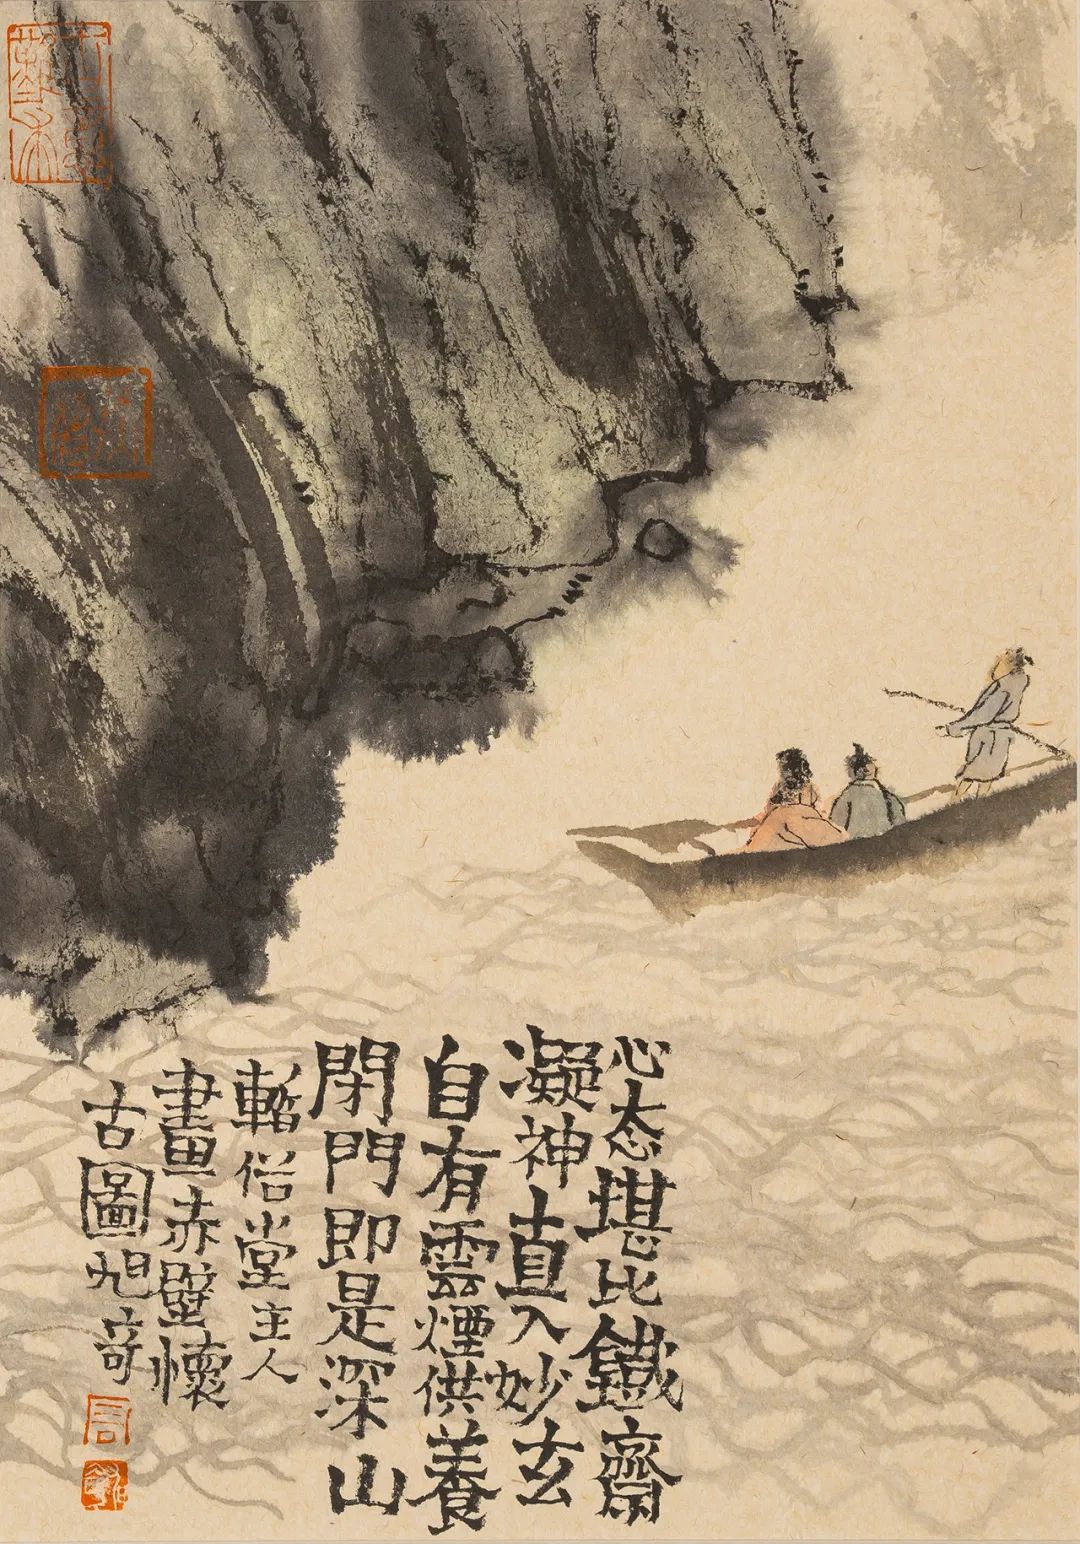 心态堪比鐵齋
凝神直入妙玄
自有雲煙供養
閉門即是深山
俗堂主人
畫赤壁懷
古圖旭奇